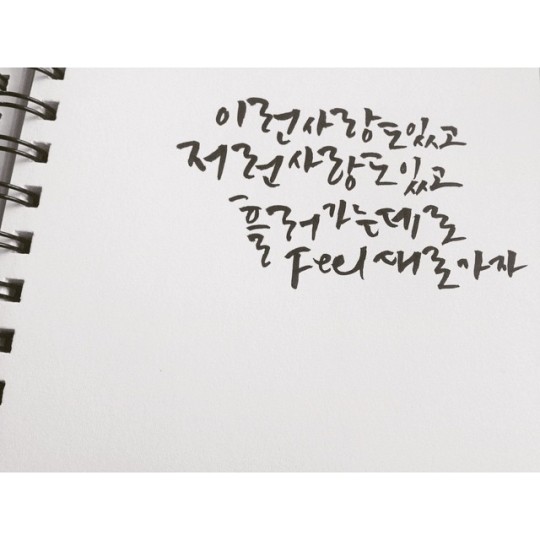 이런사랑도있고
저런사랑도있고
흘러가는데로
Feel대로가자